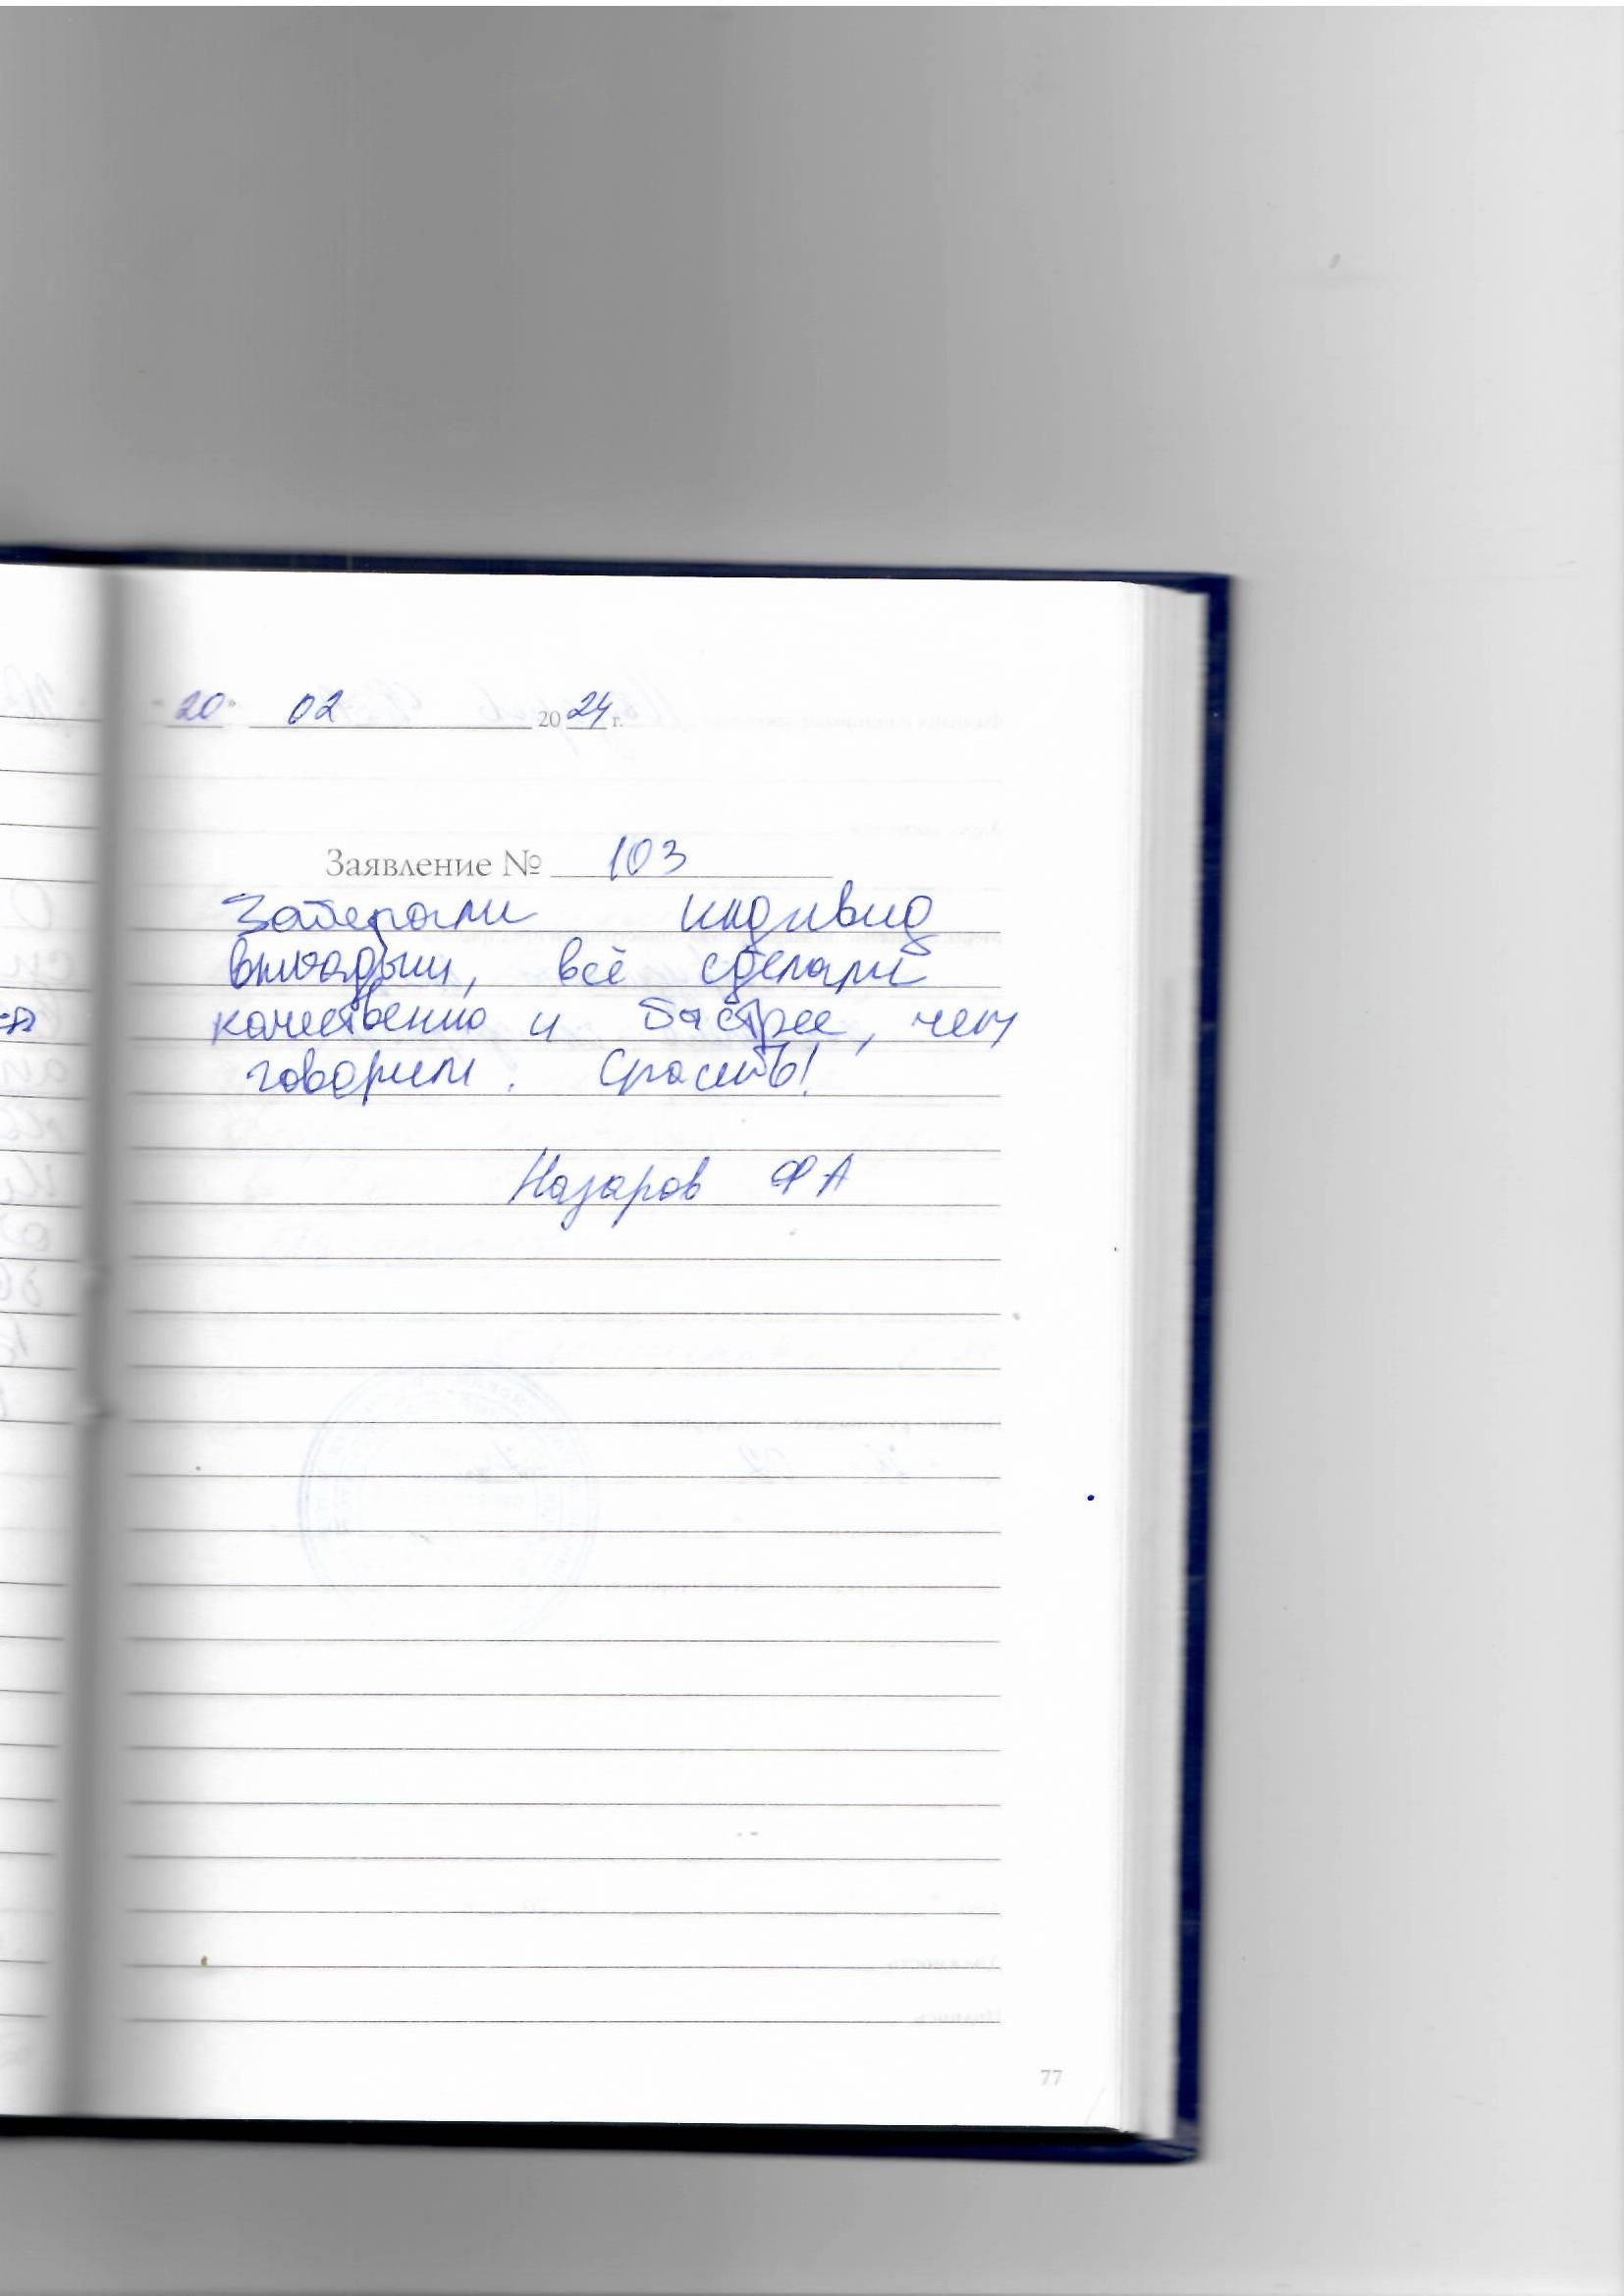 "20" 02 2024 г.
Заявление № 103
индивид
вкладыши, всё сделали
качественно и быстрее, чем
говорили. Спасибо!
Назаров ФА
77